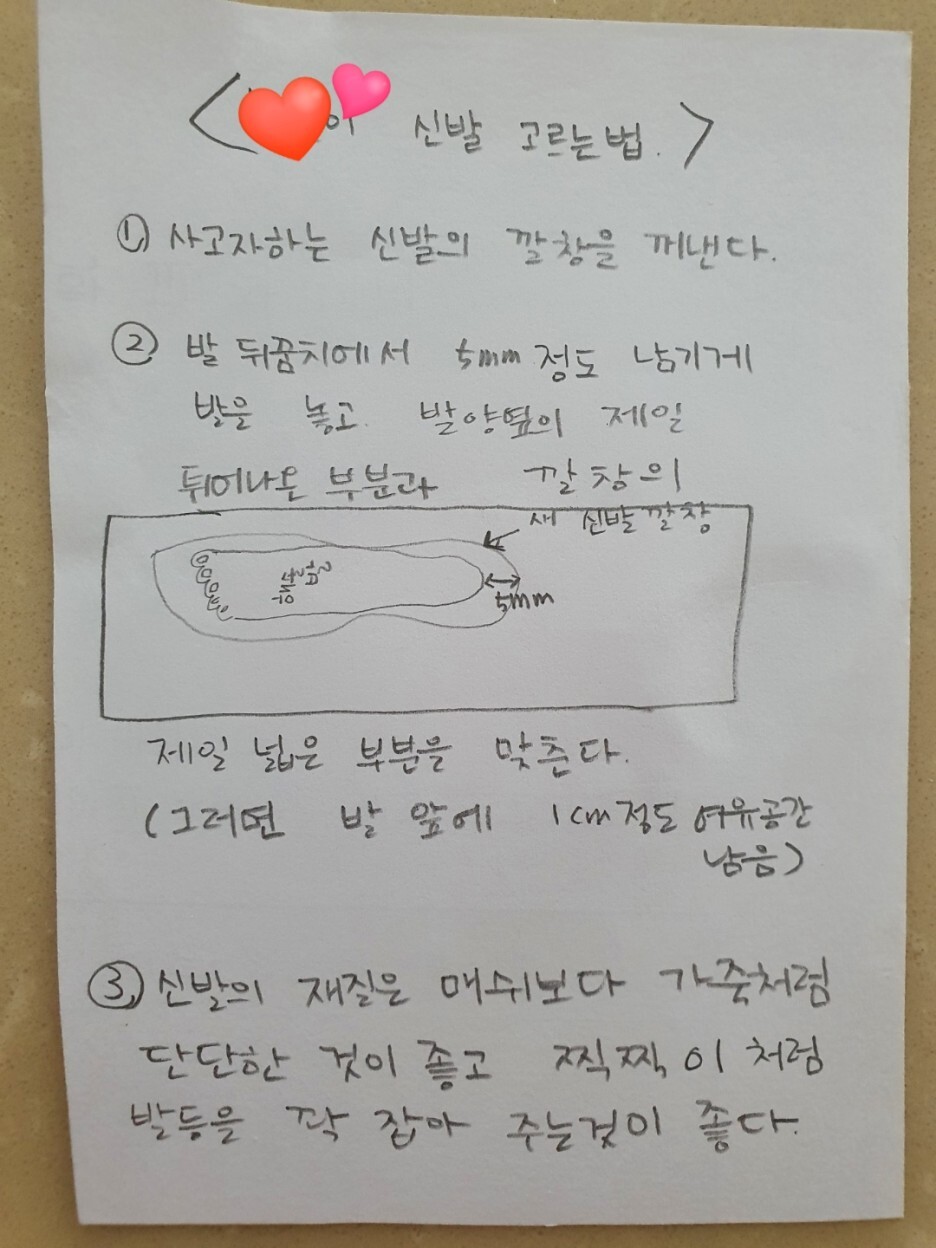 < 이 신발 고르는법. >
① 사고자하는 신발의 깔창을 꺼낸다.
② 발 뒤꿈치에서 5mm 정도 남기게
발을 놓고. 발양옆의 제일
튀어나온 부분과 깔창의
새 신발깔창
5mm
제일 넓은 부분을 맞춘다.
(그러면 발 앞에 1cm정도 여유공간
남음)
③ 신발의 재질은 매쉬보다 가죽처럼
단단한 것이 좋고 찍찍이 처럼
발등을 꽉 잡아 주는것이 좋다.